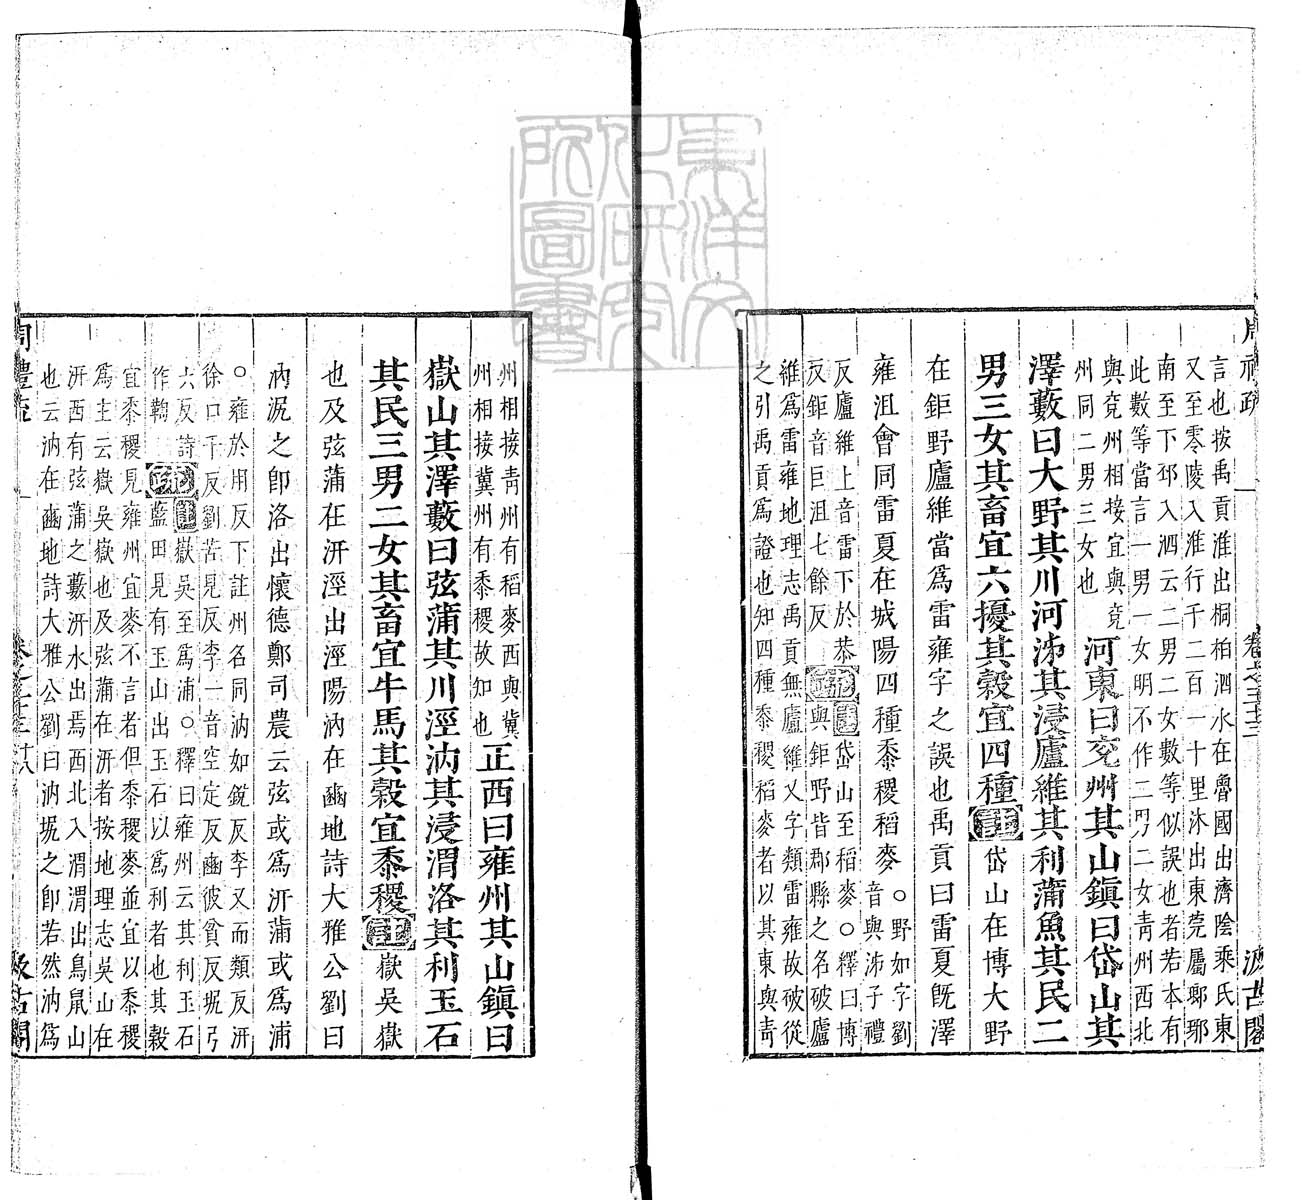 言也按禹貢淮出桐柏泗水在魯國出濟陰乘氏東
又至零陵入淮行千二百一十里沐出東莞屬瑯琊
南至下邳入泗云二男二女數等似誤也者若本有
此數等當言一男一女明不作二男二女青州西北
與兗州相接宜與兗
州同二男三女也
河東曰兗州其山鎮曰岱山其
澤藪曰大野其川河泲其浸廬維其利蒲魚其民二
男三女其畜宜六擾其穀宜四種註岱山在博大野
在鉅野廬維當為雷雍字之誤也禹貢曰雷夏既澤
雍沮會同雷夏在城陽四種黍稷稻麥
○野如字劉
音與泲子禮
反廬維上音雷下於恭
反鉅音巨沮七餘反
疏註岱山至稻麥○釋曰博
與鉅野皆郡縣之名破廬
維為雷雍地理志禹貢無廬維又字類雷雍故破從
之引禹貢為證也知四種黍稷稻麥者以其東與青
州相接青州有稻麥西與冀
州相接冀州有黍稷故知也
正西曰雍州其山鎮曰
嶽山其澤藪曰弦蒲其川涇汭其浸渭洛其利玉石
其民三男二女其畜宜牛馬其穀宜黍稷註嶽吳嶽
也及弦蒲在汧涇出涇陽汭在豳地詩大雅公劉曰
汭泥之即洛出懷德鄭司農云弦或為汧蒲或為浦
○雍於用反下註州名同汭如銳反李又而類反汧
徐口千反劉苦見反李一音空定反豳彼貧反坭弓
六反詩
作鞫
疏註嶽吳至為浦○釋曰雍州云其利玉石
藍田見有玉山出玉石以為利者也其穀
宜黍稷見雍州宜麥不言者但黍稷麥並宜以黍稷
為主云嶽吳嶽也及弦蒲在汧者按地理志吳山在
汧西有弦蒲之藪汧水出焉西北入渭渭出鳥鼠山
也云汭在豳地詩大雅公劉曰汭坭之即若然汭為
周禮疏
卷之三十三
十八
汲古閣
東洋文化研究所圖書